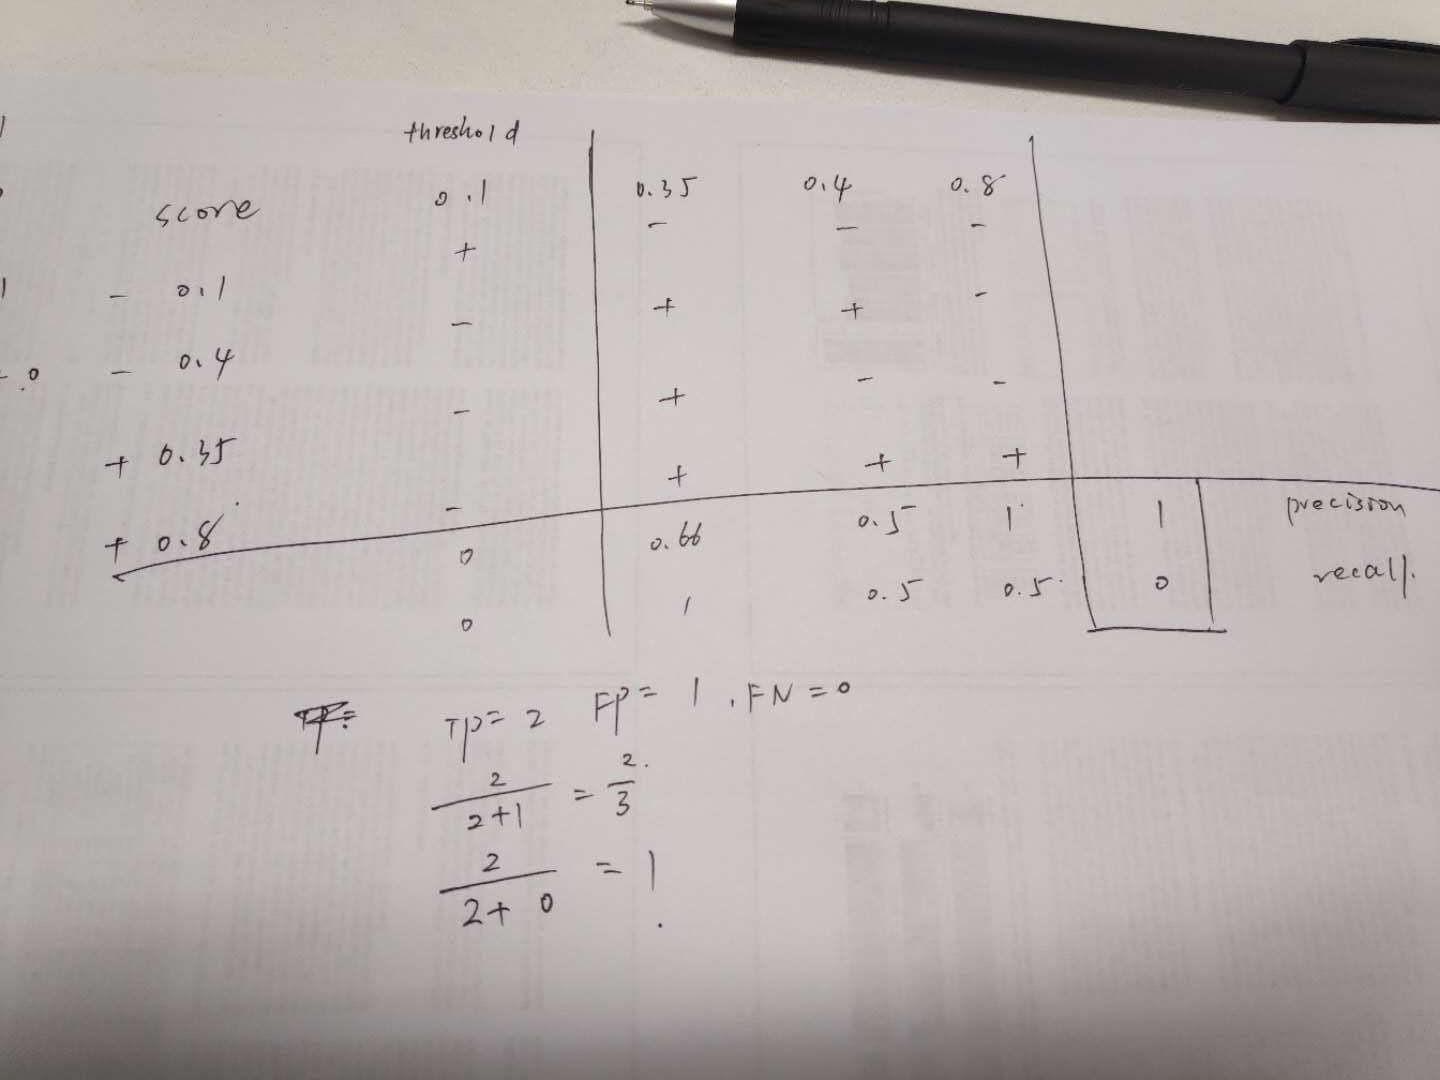 threshold
score 0.1 0.35 0.4 0.8
+ - - -
- 0.1 - + + -
- 0.4 - + - -
+ 0.35 - + + +
+ 0.8 0 0.66 0.5 1 1 precision
0 1 0.5 0.5 0 recall.
TP= 2 FP= 1 , FN = 0
2 / 2+1 = 2 / 3
2 / 2+ 0 = 1